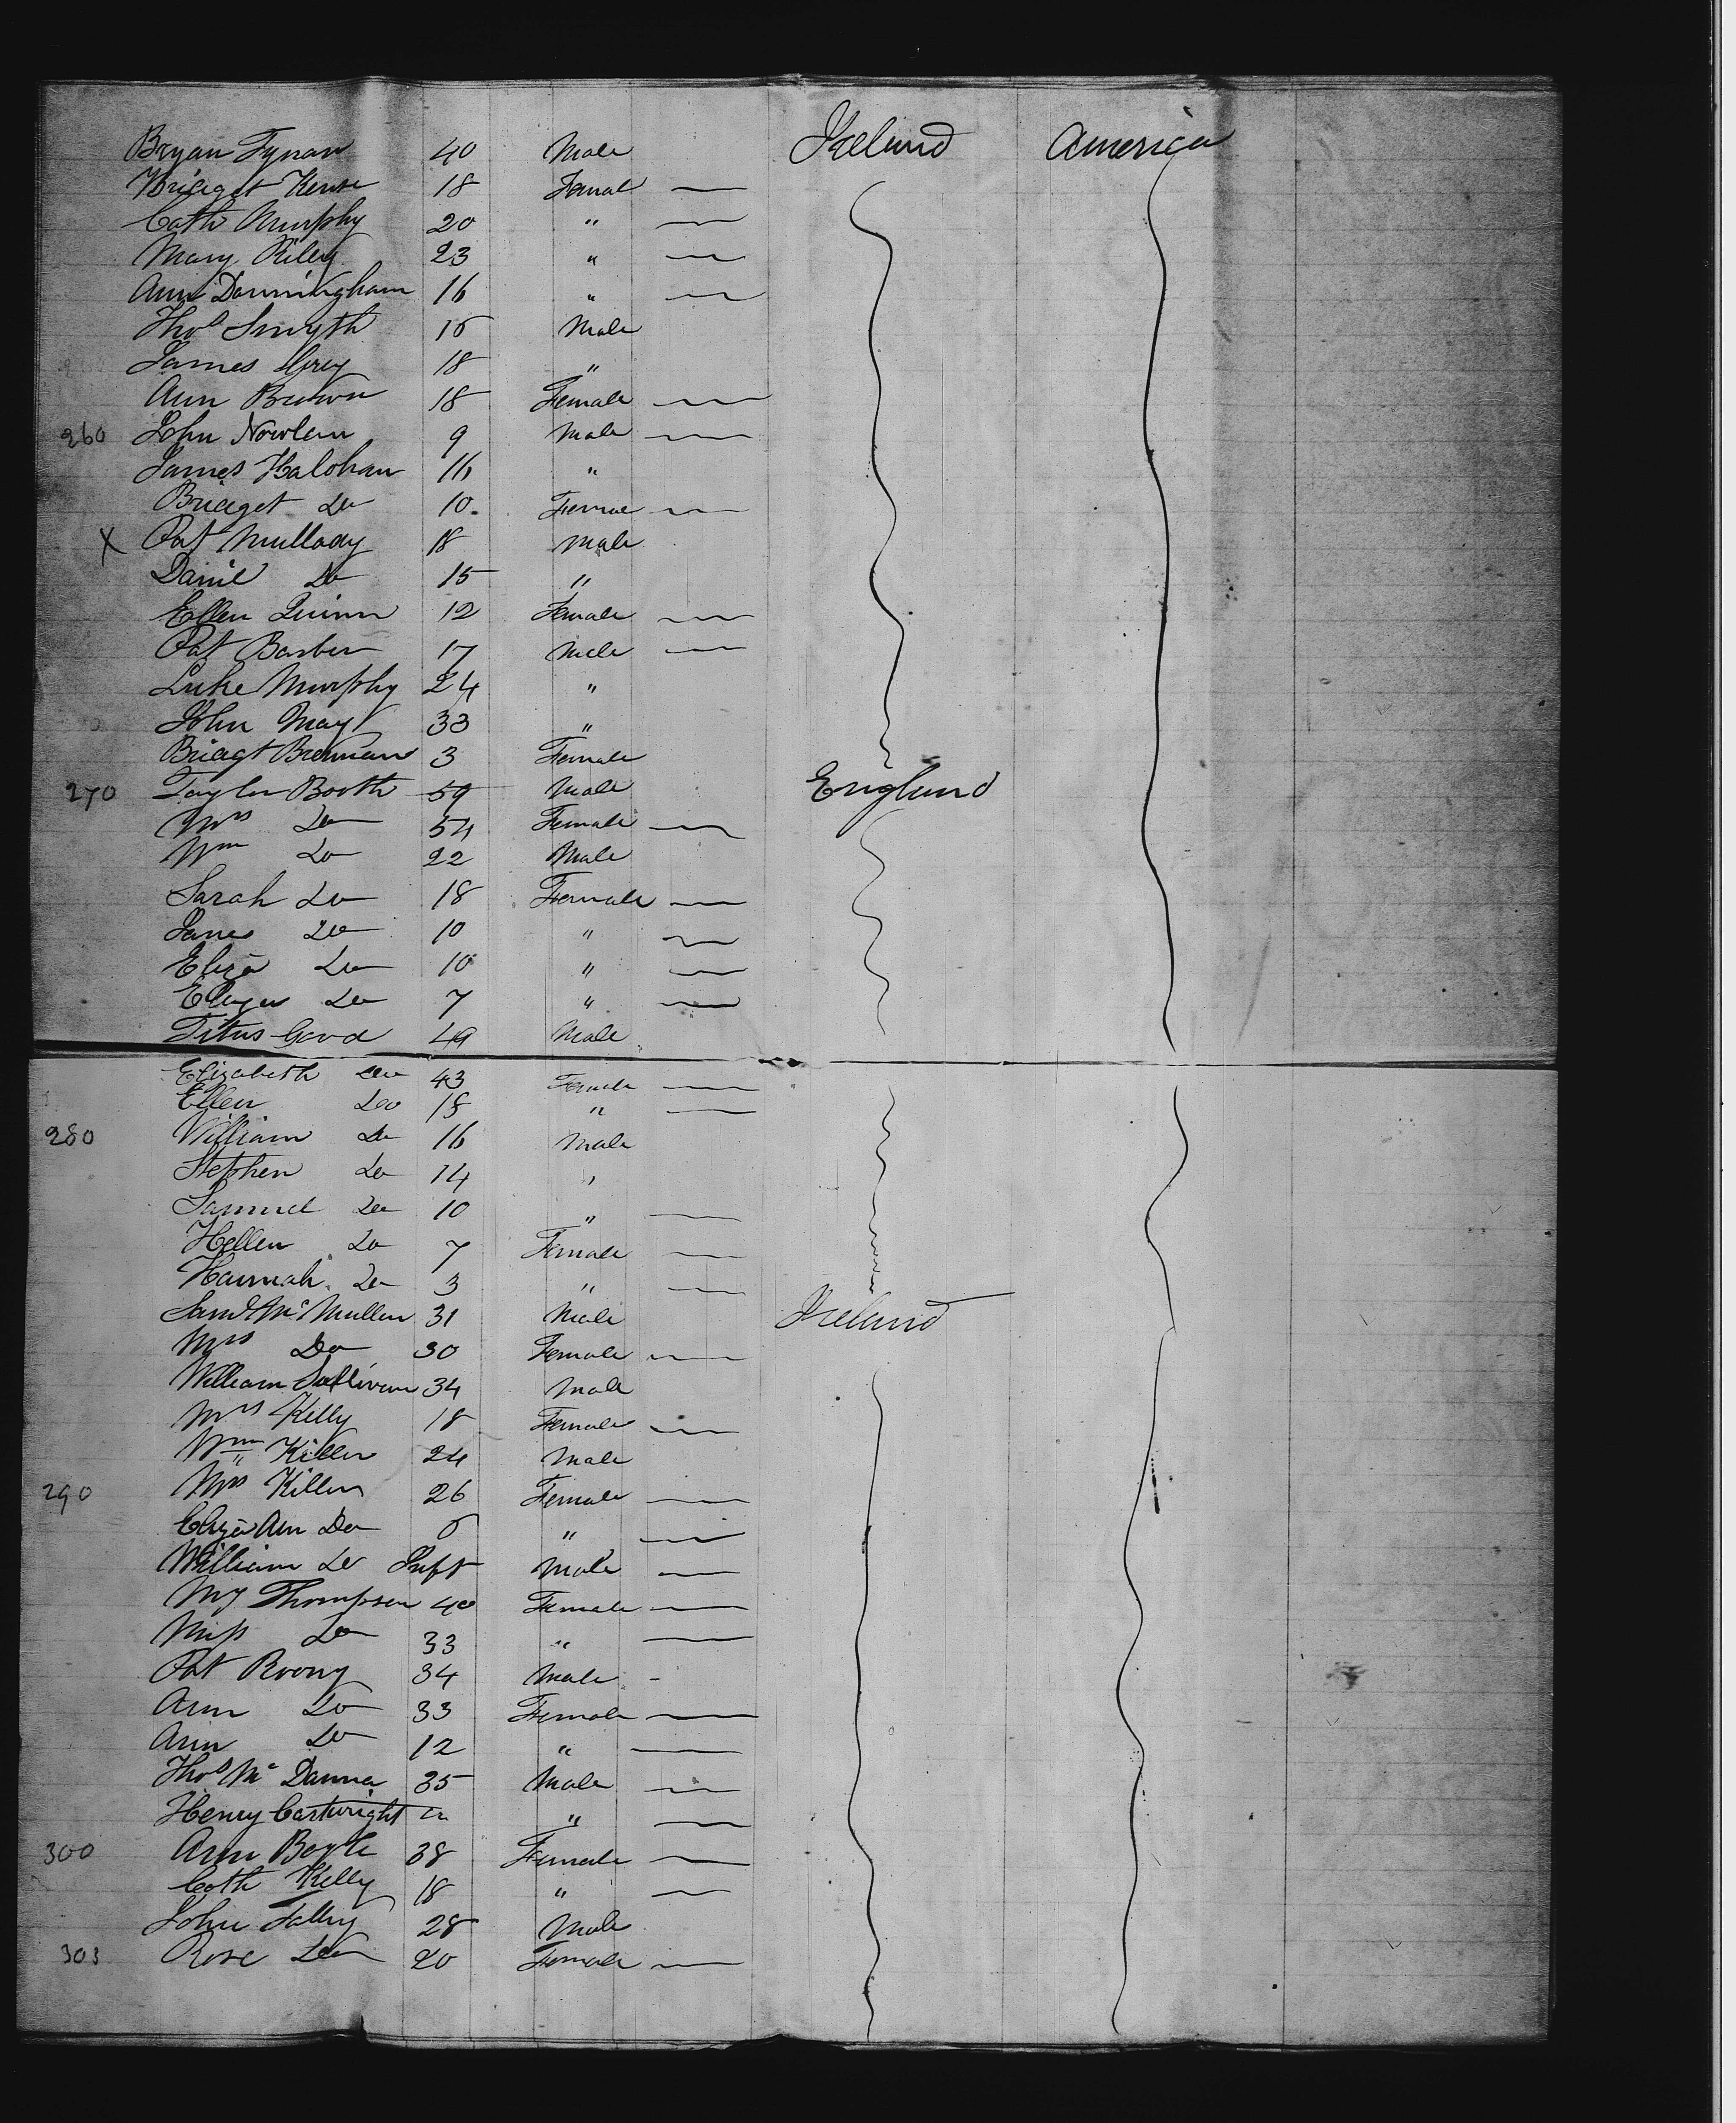 Bryan Tynan 40 Male Ireland America
Bridget 18 Femal
Cath Murphy 20 "
Mary Riley 23 "
Ann Dunningham 16 "
Thos Smyth 16 Male
James 18 "
Ann Brown 18 Female
260 John Nowlan 9 Male
James Halohan 16 "
Bridget Do 10.
X Pat Mullady 18 Male
Danil Do 15 "
Ellen Quinn 12 Female
Pat Barber 17 Male
Luke Murphy 24 "
John May 33 "
Bridgt Brennan 3 Female
270 Taylor Booth 59 Male England
Mrs Do 54 Female
Wm Do 22 Male
Sarah Do 18 Female
Jane Do 10 "
Eliza Do 10 "
Do 7 "
Titus Good 49 Male
Elizabeth Do 43 Female
Ellen Do 18 "
280 William Do 16 Male
Stephen Do 14 "
Samuel Do 10 "
Hellen Do 7 Female
Hannah Do 3 "
Saml McMullen 31 Male Ireland
Mrs Do 30 Female
William Sullivan 34 Male
Mrs Kelly 18 Female
Wm Killen 24 Male
290 Mrs Killen 26 Female
Eliza Ann Do "
William Do Inft Male
Thompson 40 Female
Miss Do 33 "
Pat Roony 34 Male
Ann Do 33 Female
Ann Do 12 "
Thos Mc Danna 35 Male
Henry Cartwright "
300 Ann Boyle 38 Female
Cath Kelly 18 "
John 28 Male
303 Rose Do 20 Female